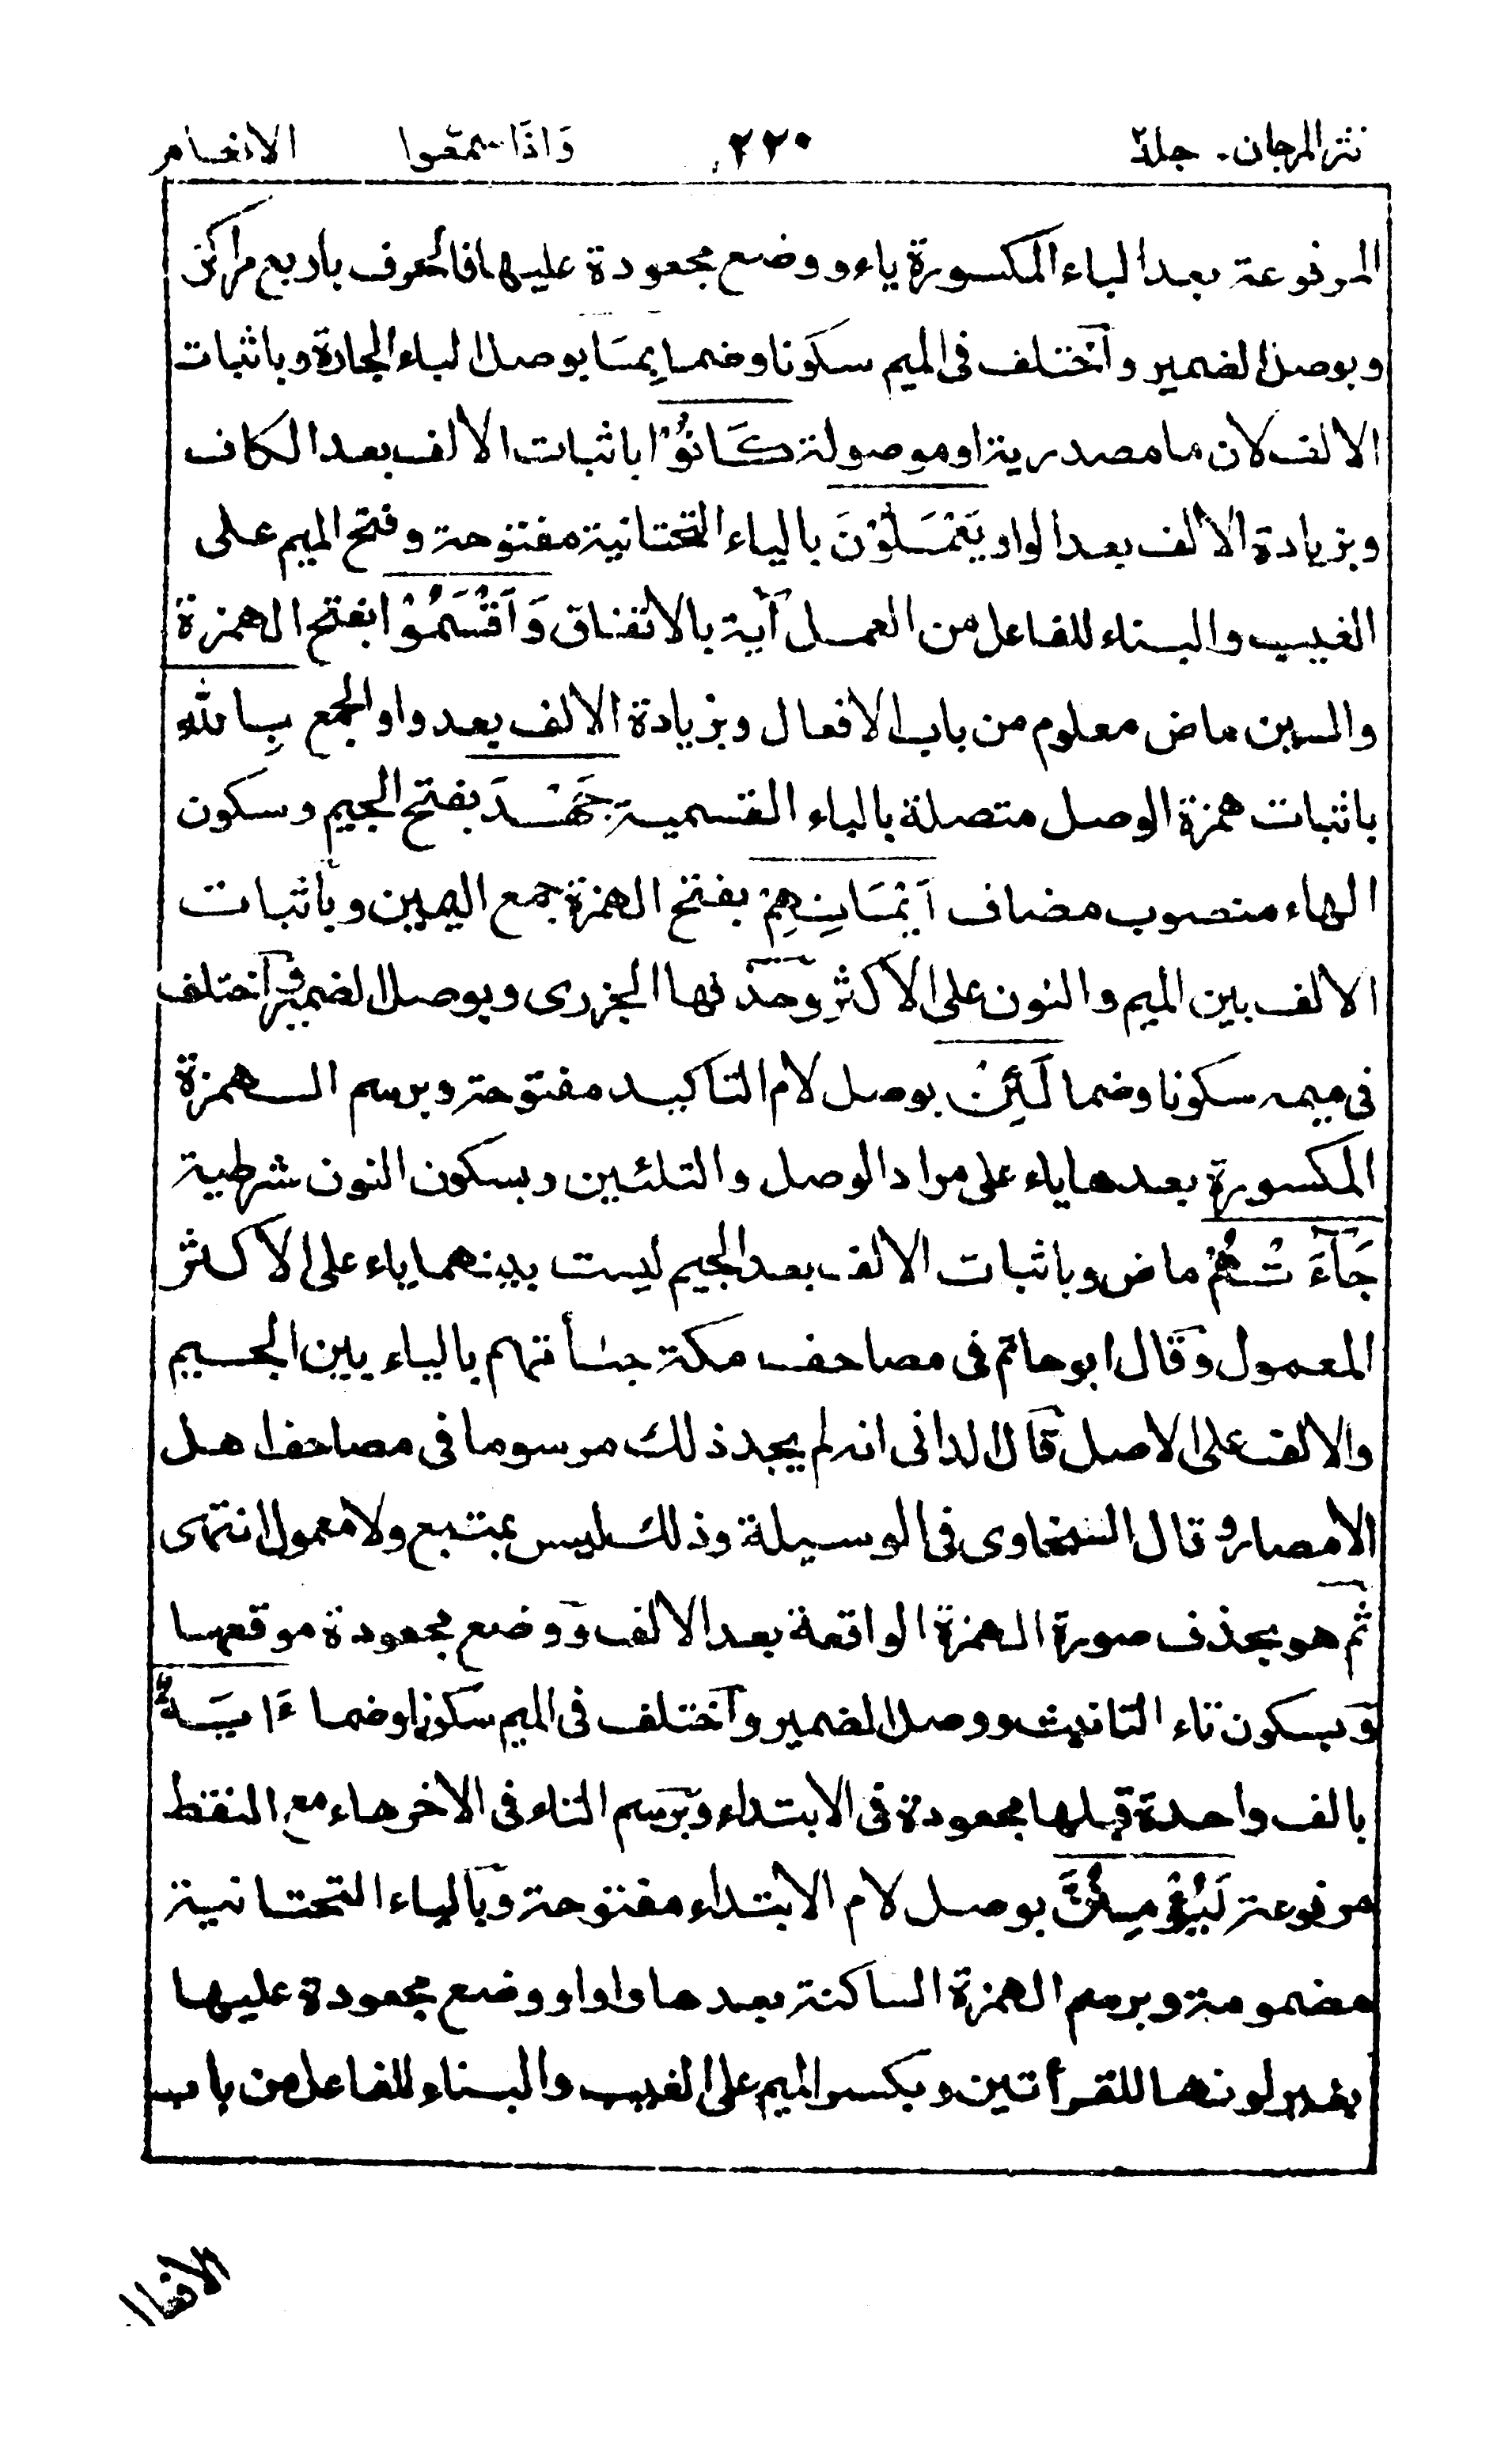 نثر المرجان. جلد٢ ٢٢٠ وَاذَا سمعوا الانعام
المرفوعة بعد الباء المكسورة ياء ووضع مجعودة عليها فالحروف باربع مراكز
وبوصل الضمير وآختلف فى الميم سكونا وضما بِمَا بوصل الباء الجارة وباثبات
الالف لان ما مصدرية او موصولة كَانُوْا باثبات الالف بعد الكاف
وبزيادة الالف بعد الواو يَعْمَلُوْنَ بالياء التحتانية مفتوحة وفتح الميم على
الغيب والبناء للفاعل من العمل آية بالاتفاق وَاَقْسَمُوْا بفتح الهمزة
والسين ماض معلوم من باب الافعال وبزيادة الالف بعد واو الجمع بِاللهِ
باثبات همزة الوصل متصلة بالباء القسمية جَهْدَ بفتح الجيم وسكون
الهاء منصوب مضاف اَيْمَانِهِمْ بفتح الهمزة جمع اليمين وبآثبات
الالف بين الميم والنون على الاكثر وحذفها الجزرى وبوصل الضمير وآختلف
فى ميمه سكونا وضما لَئِنْ بوصل لام التاكيد مفتوحة وبرسم الهمزة
المكسورة بعدها ياء على مراد الوصل والتلئين وبسكون النون شرطية
جَآءَتْهُمْ ماض وباثبات الالف بعد الجيم ليست بينهما ياء على الاكثر
المعمول وقال ابو حاتم فى مصاحف مكة جيأتهم بالياء بين الجيم
والالف على الاصل قال الدانى انه لم يجد ذلك مرسوما فى مصاحف اهل
الامصار وقال السخاوى فى الوسيلة وذلك ليس بمتبع ولا معمول انتهى
ثم هو بحذف صورة الهمزة الواقعة بعد الالف ووضع مجعودة موقعها
وبسكون تاء التانيث ووصل الضمير وآختلف فى الميم سكونا وضما ءَايَةٌ
بالف واحدة قبلها مجعودة فى الابتداء وبرسم التاء فى الاخر هاء مع النقط
مرفوعة لَيُؤْمِنُنَّ بوصل لام الابتداء مفتوحة وبالياء التحتانية
مضمومة وبرسم الهمزة الساكنة بعدها واوا ووضع مجعودة عليها
بغير لونها للقرأتين وبكسر الميم على الغيب والبناء للفاعل من باب
الافعال